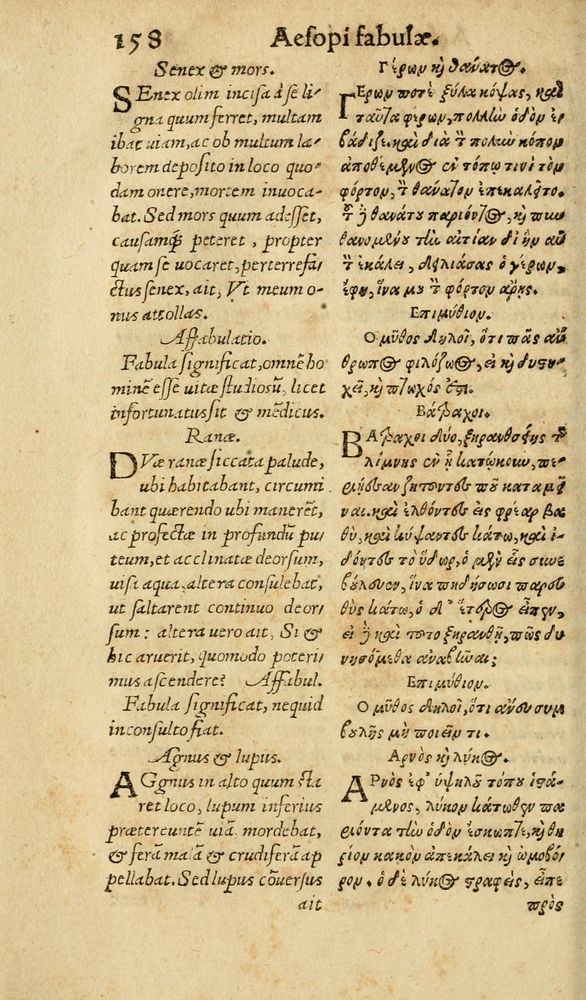 158 Aesopi fabulæ.
Senex & mors.
SEnex olim incisa à se li-
gna quum ferret, multam
ibat uiam, ac ob multum la-
borem deposito in loco quo-
dam onere, mortem inuoca-
bat. Sed mors quum adesset,
causamq́; peteret, propter
quam se uocaret, perterrefa-
ctus senex, ait, Vt meum o-
nus attollas.
Affabulatio.
Fabula significat, omnē ho
minē esse uitæ studiosū, licet
infortunatus sit & mēdicus.
Ranæ.
DVæ ranæ siccata palude,
ubi habitabant, circumi
bant quærendo ubi manerēt,
ac profectæ in profundū pu-
teum, et acclinatæ deorsum,
uisa aqua, altera consulebat,
ut saltarent continuo deor-
sum: altera uero ait, Si &
hic aruerit, quomodo poteri-
mus ascendere? Affabul.
Fabula significat, nequid
inconsulto fiat.
Agnus & lupus.
AGgnus in alto quum sta
ret loco, lupum inferius
prætereuntē uiā mordebat,
& ferā malā & crudiferā ap
pellabat. Sed lupus cōuersus
ait
Γέρων κὴ θάνατος.
ΓΕρων ποτὲ ξύλα κόψας, καὶ
ταῦτα φέρων, πολλὼ ὁδὸν ἐ-
βάδιζε. καὶ διὰ τ πολὺν κόπον
ἀποθέμενος ἐν τόπῳ τινὶ τὸν
φόρτον, τ θάνατον ἐπεκαλεῖτο.
τ ἢ θανάτου παριόντος, κὴ πυν
θανομένου τὼ αἰτίαν δι' ἣν αὐ
τ ἐκάλει, δειλιάσας ὁ γέρων,
ἔφη, ἵνα μου τ φόρτον ἄρῃς.
Επιμύθιον.
Ο μῦθος δηλοῖ, ὅτι πᾶς ἄν
θρωπος φιλόζωος, εἰ κὴ δυστυ-
χεῖ, κὴ πτωχός ἐστι.
Βάτραχοι.
ΒΑτραχοι δύο, ξηρανθείσης τ
λίμνης ἐν ᾗ κατῴκουν, πε-
ριῄεσαν ζητοῦντες ποῦ καταμεῖ
ναι. καὶ ἐλθόντες εἰς φρέαρ βα
θὺ, καὶ κύψαντες κάτω, καὶ ἰ-
δόντες τὸ ὕδωρ, ὁ μὲν εἷς συνε
βούλευεν, ἵνα πηδήσωσι παρευ
θὺς κάτω, ὁ δ' ἕτερος εἶπεν,
εἰ ἢ καὶ τοτο ξηρανθῇ, πῶς δυ
νησόμεθα ἀναβῆναι;
Επιμύθιον.
Ο μῦθος δηλοῖ, ὅτι ἄνευ συμ
βουλῆς μὴ ποιεῖν τι.
Αρνὸς κὴ λύκος.
ΑΡνὸς ἐφ' ὑψηλοῦ τόπου ἱστά-
μενος, λύκον κάτωθεν πα
ριόντα τὼ ὁδὸν ἔσκωπτε, κὴ θη
ρίον κακὸν ἀπεκάλει κὴ ὠμοβό-
ρον. ὁ δὲ λύκος στραφεὶς, εἶπε
πρὸς